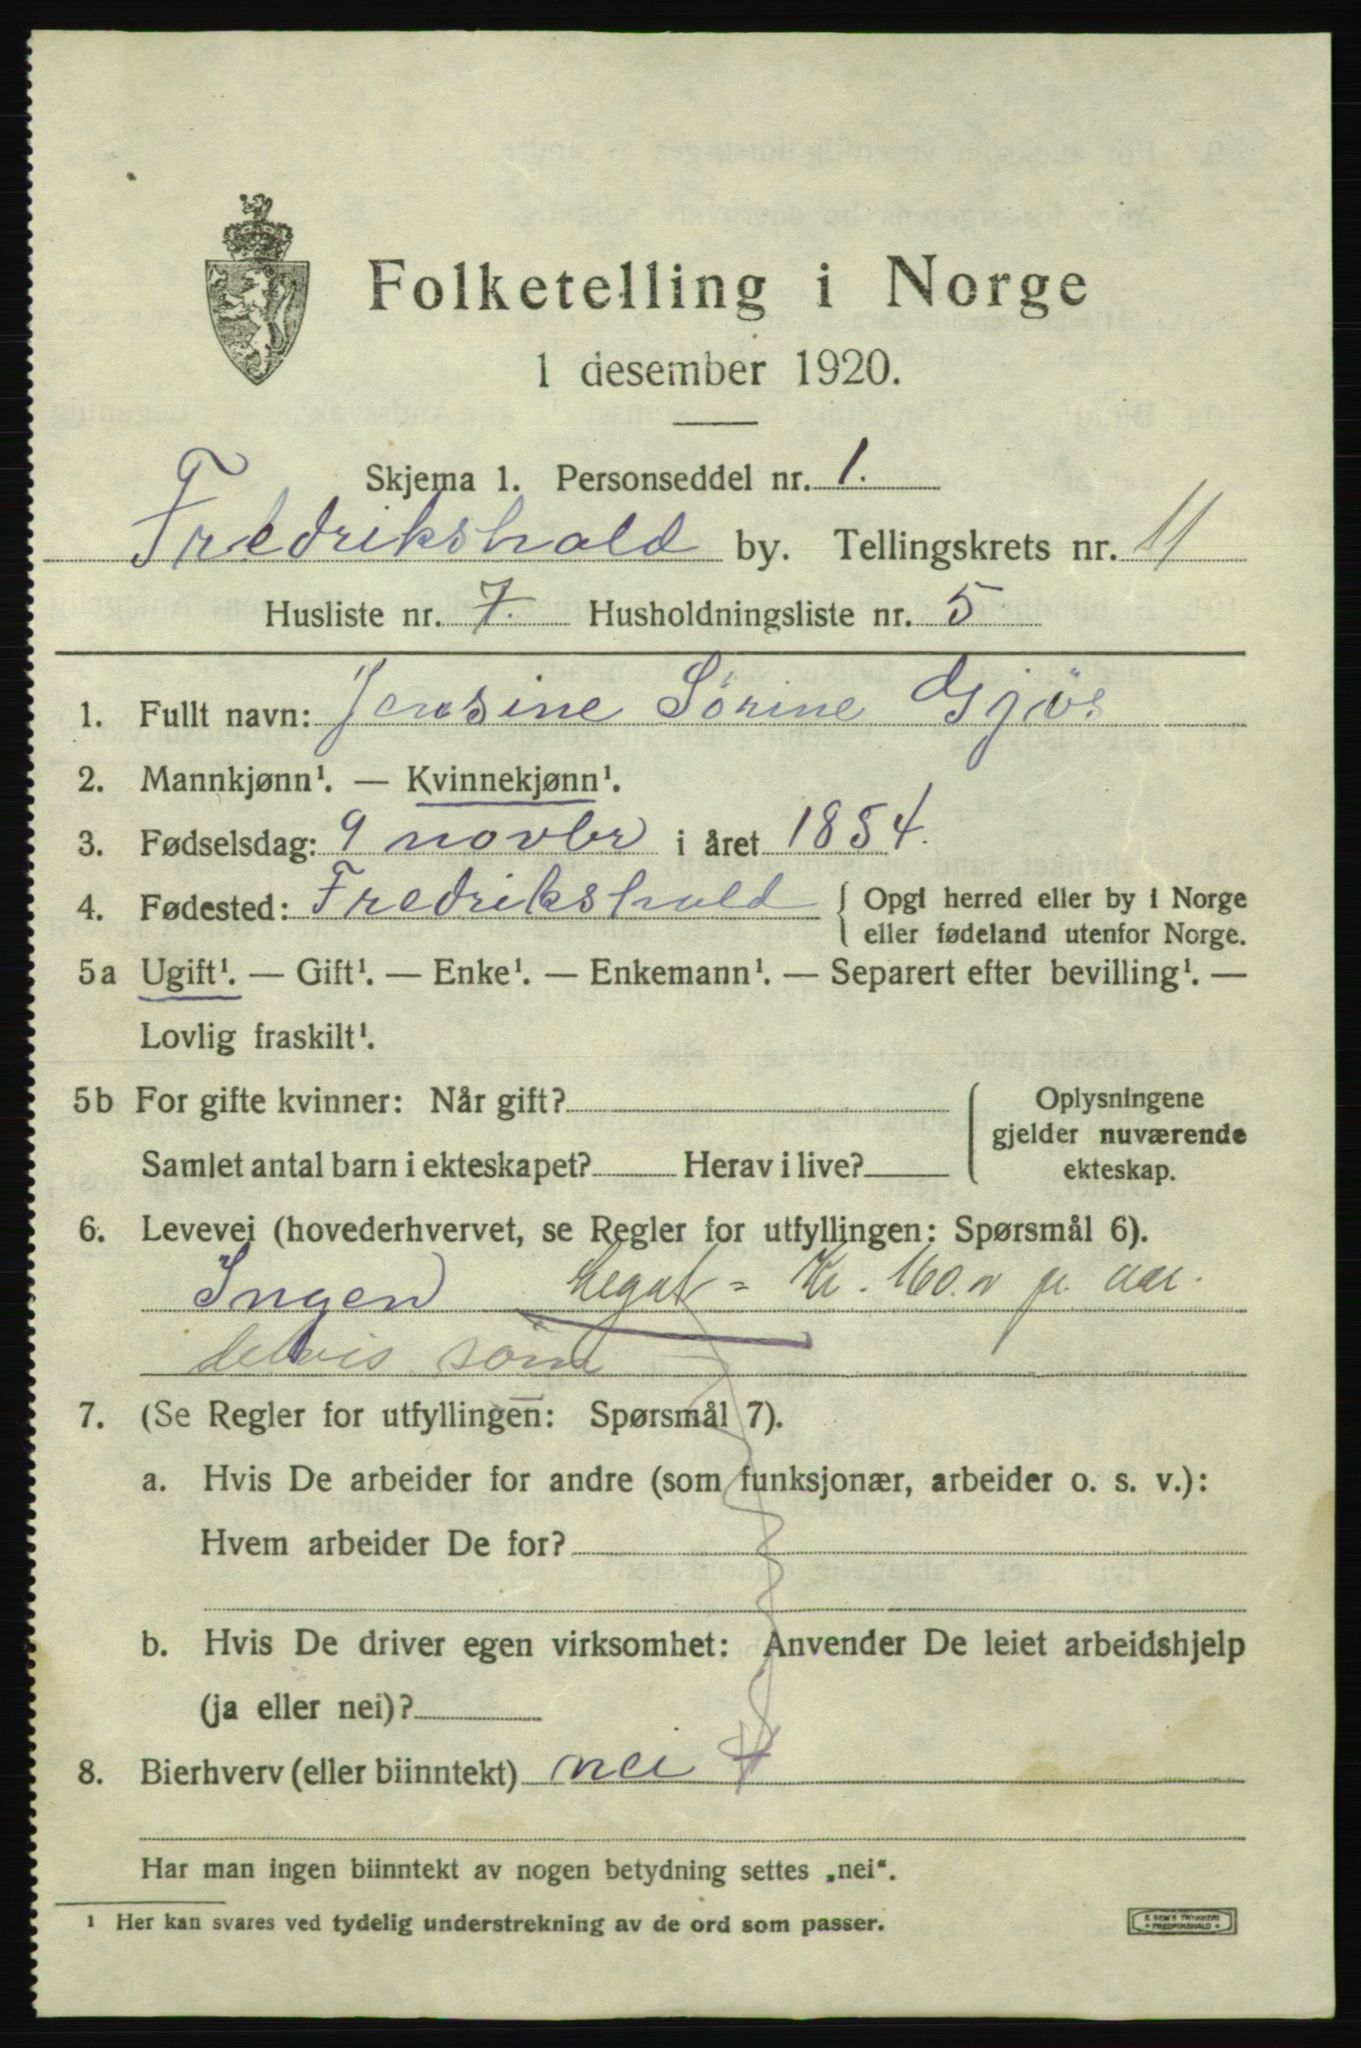 Folketelling i Norge
1 desember 1920.
Skjema 1. Personseddel nr. 1.
Fredrikshald by. Tellingskrets nr. 11
Husliste nr. 7. Husholdningsliste nr. 5
1. Fullt navn: Jensine Sørine Gjøs
2. Mannkjønn¹. — Kvinnekjønn¹.
3. Fødselsdag: 9 novbr i året 1854.
4. Fødested: Fredrikshald { Opgi herred eller by i Norge
eller fødeland utenfor Norge.
5a Ugift¹. — Gift¹. — Enke¹. — Enkemann¹. — Separert efter bevilling¹. —
Lovlig fraskilt¹.
5b For gifte kvinner: Når gift? { Oplysningene
gjelder nuværende
Samlet antal barn i ekteskapet? Herav i live? ekteskap.
6. Levevei (hovederhvervet, se Regler for utfyllingen: Spørsmål 6).
Ingen Legat = Kr. 160.
delvis
7. (Se Regler for utfyllingen: Spørsmål 7).
a. Hvis De arbeider for andre (som funksjonær, arbeider o. s. v.):
Hvem arbeider De for?
b. Hvis De driver egen virksomhet: Anvender De leiet arbeidshjelp
(ja eller nei)?
8. Bierhverv (eller biinntekt) nei
Har man ingen biinntekt av nogen betydning settes „nei“.
¹ Her kan svares ved tydelig understrekning av de ord som passer.
E SEM'S TRYKKERI
FREDRIKSHALD